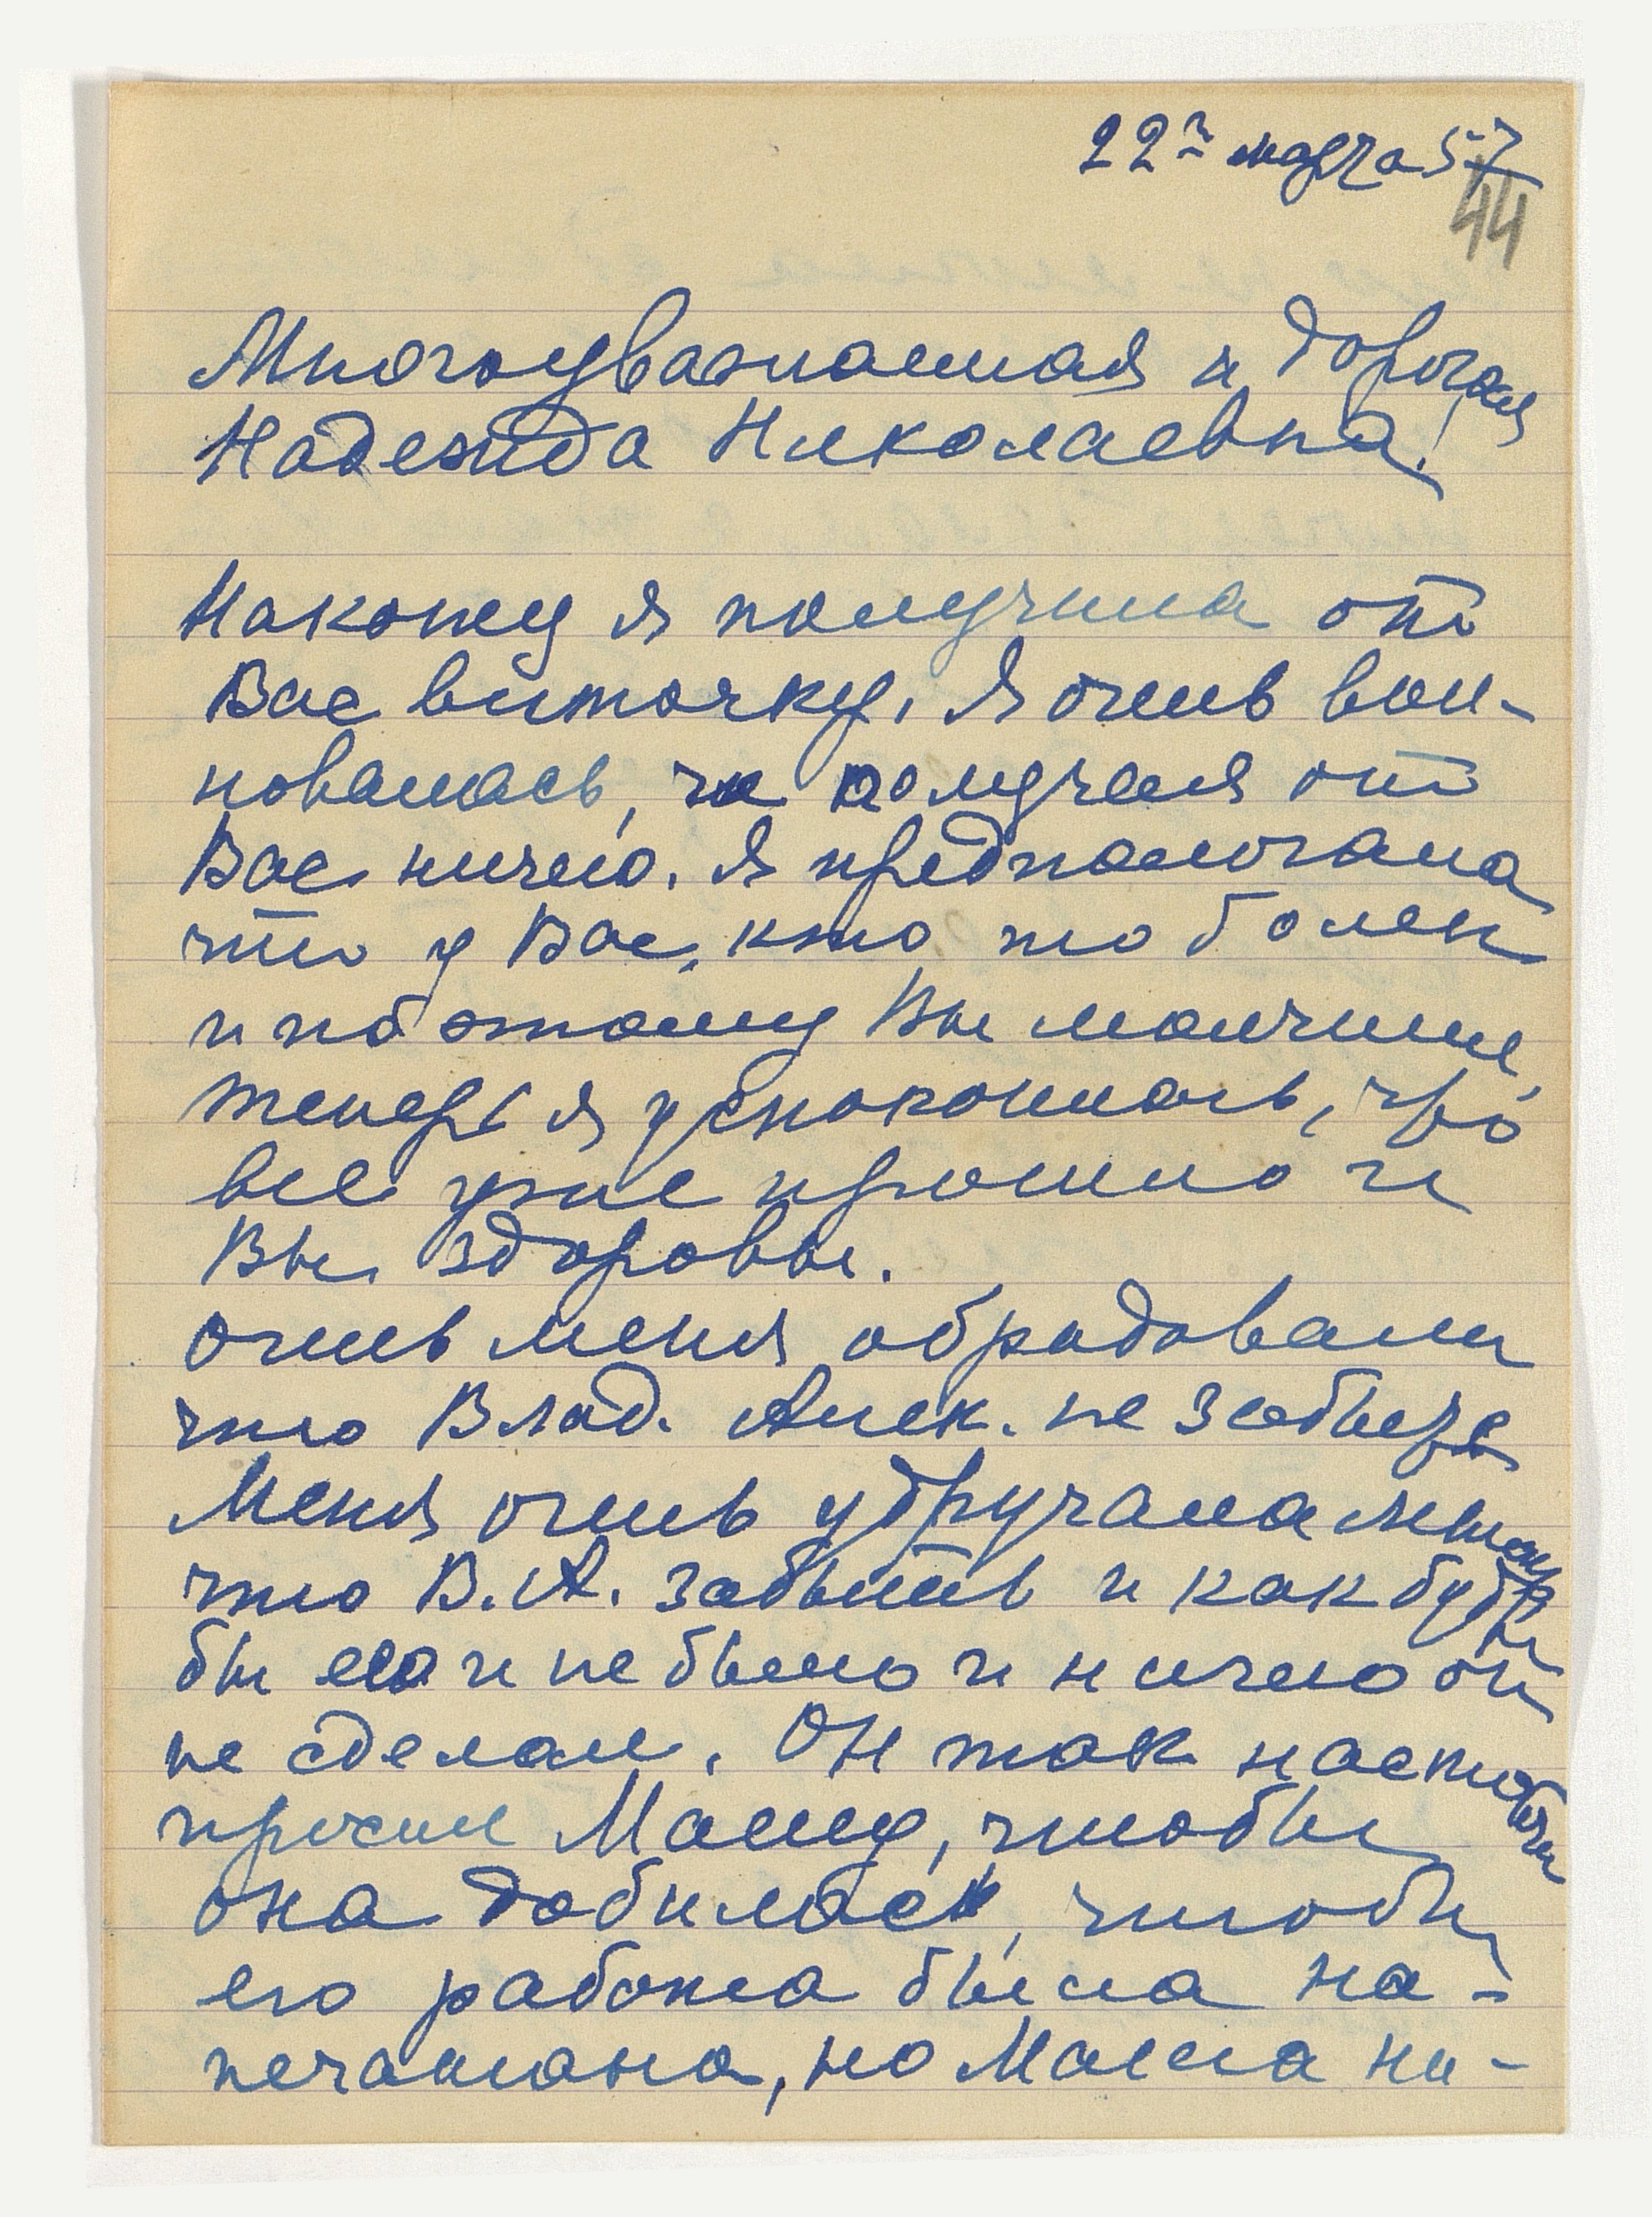 22го марта 57
44
Многоуважаемая и дорогая
Надежда Николаевна!
Наконец я получила от
Вас весточку. Я очень вол-
новалась, не получая от
Вас ничего. Я предполагала
что у Вас, кто то болен
и поэтому Вы молчите,
теперь я успокоилась, что
все уже прошло и
Вы здоровы.
Очень меня обрадовали
что Влад. Алек. не забыт
Меня очень удручала мысль
что В.А. забыт и как будто
бы его и не было и ничего он
не сделал. Он так настойчиво
просил Машу, чтобы
она добилась, чтобы
его работа была на-
печатана, но Маша ни-